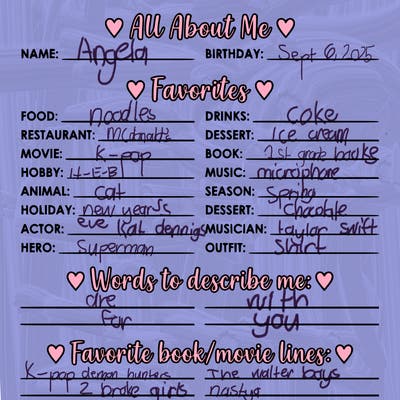 All About Me
NAME: Angela BIRTHDAY: Sept 6, 2025
Favorites
FOOD: noodles DRINKS: coke
RESTAURANT: McDonald's DESSERT: Ice cream
MOVIE: K-pop BOOK: 1st grade books
HOBBY: H-E-B MUSIC: microphone
ANIMAL: cat SEASON: Spring
HOLIDAY: new year's DESSERT: Chocolate
ACTOR: eve kat dennigs MUSICIAN: taylor swift
HERO: Superman OUTFIT: Shirt
Words to describe me:
are with
far you
Favorite book/movie lines:
K-pop demon hunters The walter boys
2 broke girls nastya